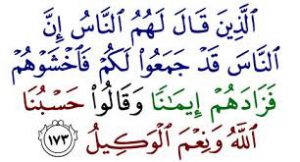 ٱلَّذِينَ قَالَ لَهُمُ ٱلنَّاسُ إِنَّ
ٱلنَّاسَ قَدۡ جَمَعُواْ لَكُمۡ فَٱخۡشَوۡهُمۡ
فَزَادَهُمۡ إِيمَٰنٗا وَقَالُواْ حَسۡبُنَا
ٱللَّهُ وَنِعۡمَ ٱلۡوَكِيلُ ١٧٣